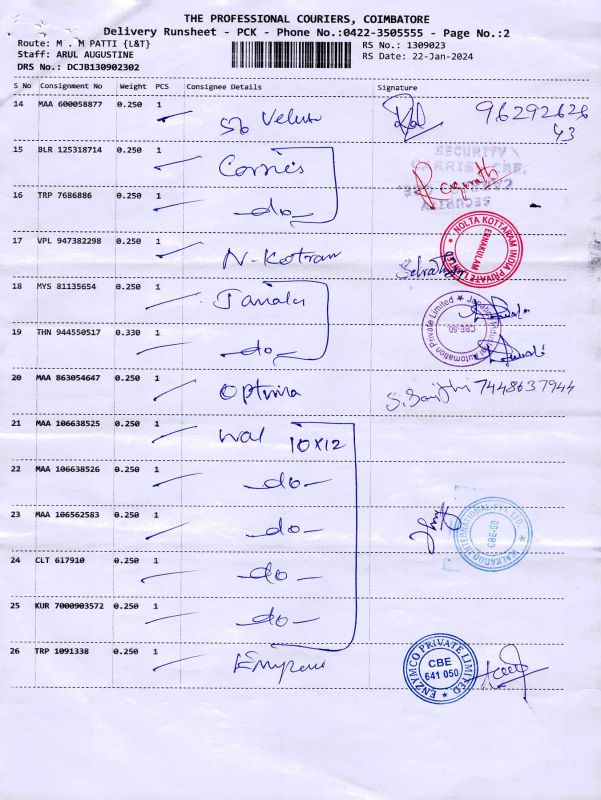 THE PROFESSIONAL COURIERS, COIMBATORE
Delivery Runsheet - PCK - Phone No.:0422-3505555 - Page No.:2
Route: M . M PATTI {L&T}
Staff: ARUL AUGUSTINE
DRS No.: DCJB130902302
RS No.: 1309023
RS Date: 22-Jan-2024
S No Consignment No Weight PCS Consignee Details Signature
14 MAA 600058877 0.250 1 96292626
43
15 BLR 125318714 0.250 1
SECURITY
16 TRP 7686886 0.250 1 -do-
17 VPL 947382298 0.250 1 N-Kotran
NOLTA KOTTARAM INDIA PRIVATE LIMITED
ERNAKULAM
18 MYS 81135654 0.250 1
19 THN 944550517 0.330 1 -do-
Automation Private Limited
CBE-50.
20 MAA 863054647 0.250 1 Optima 7448637944
21 MAA 106638525 0.250 1 Wal 10X12
22 MAA 106638526 0.250 1 -do-
23 MAA 106562583 0.250 1 -do-
WALKAROO INTERNATIONAL PVT LTD.
CBE-50
24 CLT 617910 0.250 1 -do-
25 KUR 7000903572 0.250 1 -do-
26 TRP 1091338 0.250 1
ENZYMCO PRIVATE LIMITED
CBE
641 050